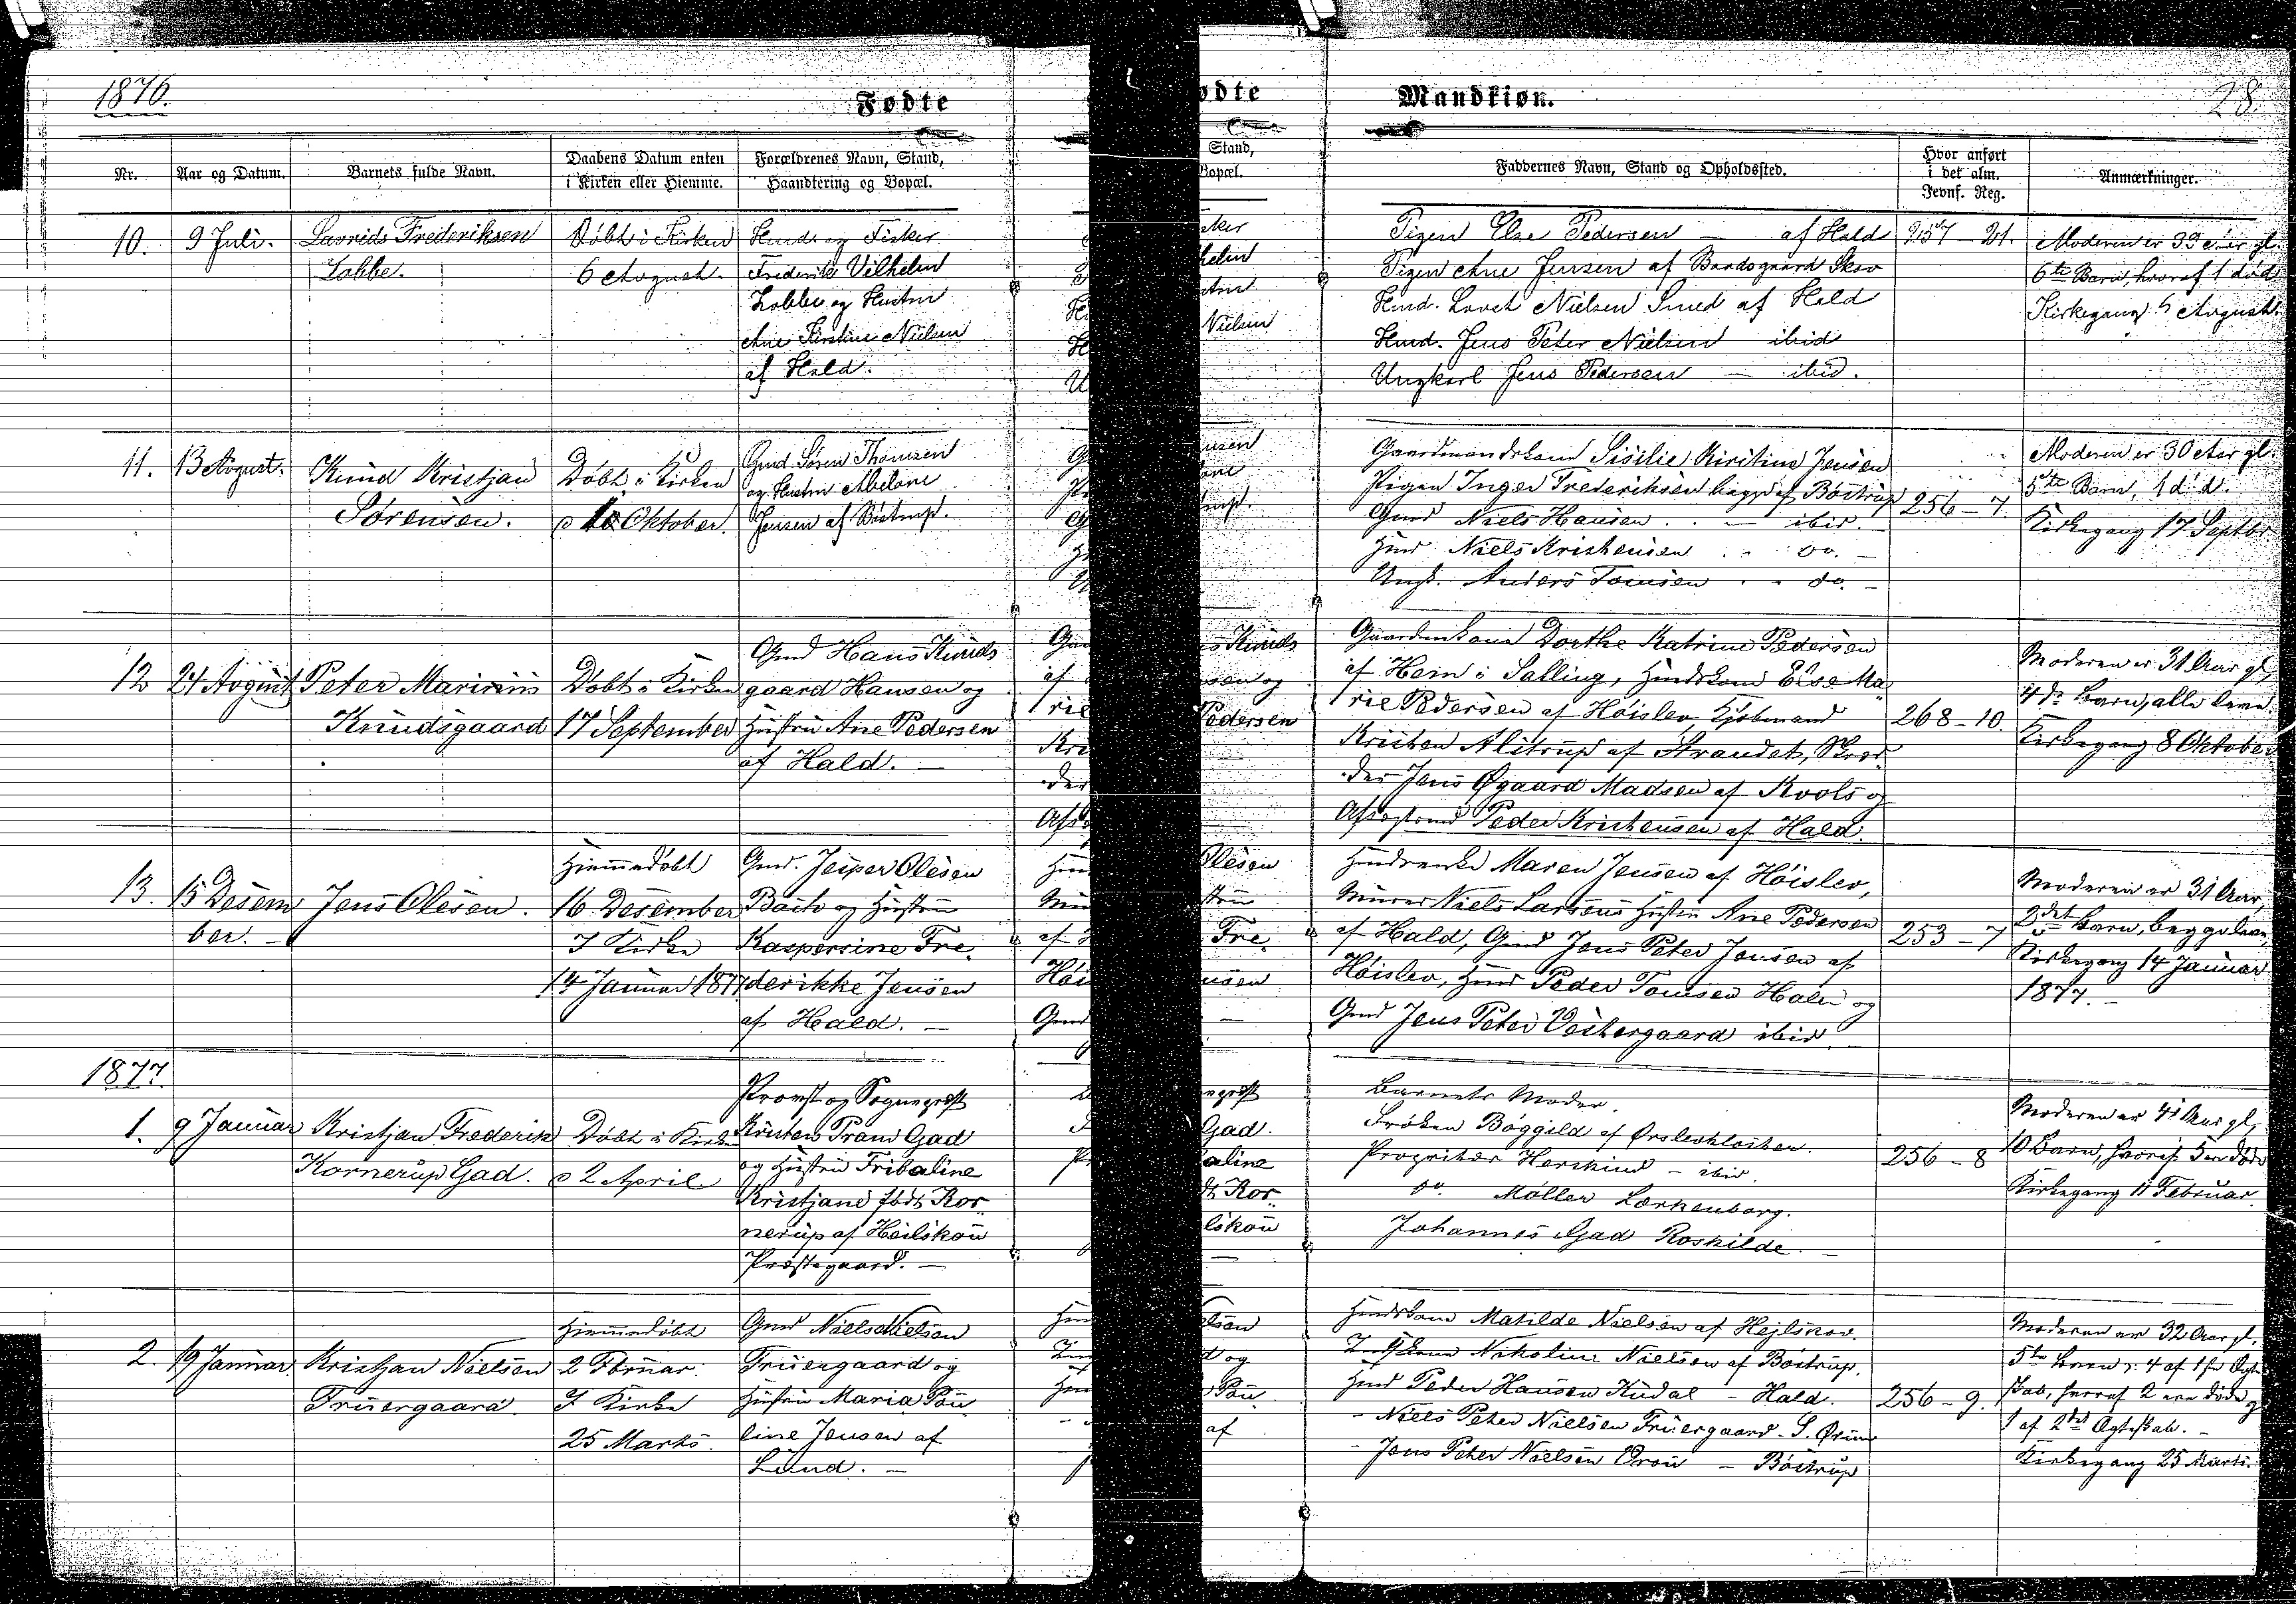 1876.
Fødte
Nr.
Aar og Datum.
Barnets fulde Navn.
Daabens Datum enten
i Kirken eller Hiemme.
Forældrenes Navn, Stand,
Haandtering og Bopæl.
10.
9 Juli.
Lavrids Frederiksen
Lobbe.
Døbt i Kirken
6 Avgust.
Hmd. og Fisker
Frederik Vilhelm
Lobbe og Hustru
Ane Kirstine Nielsen
af Hald.
11.
13 Avgust.
Knud Kristjan
Sørensen.
Døbt i Kirken
Oktober.
Gmd. Søren Thomsen
og Hustru Abelone
Jensen af Bøstrup.
12
24 Avgust
Peter Marinus
Knudsgaard
Døbt i Kirken
17 September
Gmd Hans Knuds
gaard Hansen og
Hustru Ane Pedersen
af Hald. —
13.
15 Desem
ber. —
Jens Olesen.
Hjemmedøbt
16 Desember
I Kirke
14 Januar 1877
Gmd. Jesper Olesen
og Hustru
Kaspersine Fre
derikke Jensen
af Hald. —
1877.
1.
9 Januar
Kristjan Frederik
Kornerup Gad.
Døbt i Kirken
2 April
Provst og Sognepræst
Kristen Pram Gad
og Hustru
Kristjane født Kor
nerup af Heilskou
Præstegaard. —
2.
19 Januar.
Kristjan Nielsen
Fruergaard.
Hjemmedøbt
2 Februar.
I Kirke
25 Marts.
Gmd Niels Nielsen
Fruergaard og
Hustru Maria Pou
line Jensen af
Lund. —
Mandkiøn.
28.
Faddernes Navn, Stand og Opholdssted.
Hvor anført
i det alm.
Jevnf. Reg.
Anmærkninger.
Pigen Else Pedersen — af Hald
Pigen Ane Jensen af Bandsgaard Skov
Hmd. Nielsen Smed af Hald
Hmd. Jens Peter Nielsen ibid
Ungkarl Jens Pedersen — ibid.
257 – 21.
Moderen er aar gl.
6te Barn, hvoraf 1 død
Kirkegang Avgust.
Gaardmandskone Sisilie Kirstine Jensen
Pigen Inger Frederiksen begge af Bøstrup
Gmd Niels Hansen — ibid.
Hmd Niels Kristensen do. —
Ungk. Anders Tomsen do. —
256 – 7.
Moderen er 30 Aar gl.
5te Barn, 1 død.
Kirkegang 17 Septbr
Gaardmkone Dorthe Katrine Pedersen
af Hem i Salling, Hmdskone Else Ma
rie Pedersen af Høislev, Kjøbmand
Kristen Alstrup af Strandet, Skræd
der Jens Øgaard Madsen af Kvols og
Aftægtsmd Peder Kristensen af Hald.
268 – 10.
Moderen er 31 Aar gl,
4de Barn, alle leve.
Kirkegang 8 Oktober
Maren Jensen af Høislev,
Murer Niels Larsens Hustru Ane Pedersen
af Hald, Gmd Jens Peter Jensen af
Høislev, Hmd Peder Tomsen Hald og
Gmd Jens Peter Vestergaard ibid. —
253 – 7
Moderen er 31 Aar,
2det Barn, begge leve,
Kirkegang 14 Januar
1877. —
Barnets Moder.
Frøken Bøggild af Ørslevkloster.
Proprietær Herskind — ibid.
do. Møller Lærkenborg.
Johannes Gad Roskilde. —
256 – 8
Moderen er 41 Aar gl,
10 Barn, hvoraf 5 ere døde
Kirkegang 11 Februar.
Hmdskone Matilde Nielsen af Hejlskov.
Nikoline Nielsen af Bøstrup.
Hmd Peder Hansen Kudal — Hald.
– Niels Peter Nielsen Fruergaard – S. Ørum
– Jens Peter Nielsen — Bøstrup
256 – 9.
Moderen er 32 Aar gl.
5te Barn 4 af 1ste Ægte
skab, hvoraf 2 ere døde og
1 af 2det Ægteskab. —
Kirkegang 25 Marts.